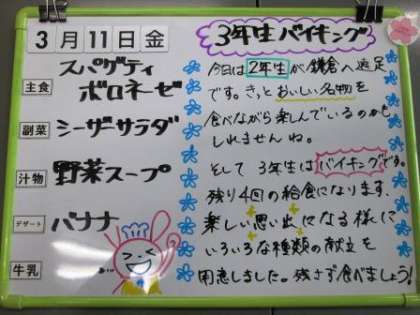 3月11日金
主食
スパゲティ
ボロネーゼ
副菜
シーザーサラダ
汁物
野菜スープ
デザート
バナナ
牛乳
3年生バイキング
今日は2年生が鎌倉へ遠足
です。きっとおいしい名物を
食べながら楽しんでいるのかも
しれませんね。
そして3年生はバイキングです。
残り4回の給食になります。
楽しい思い出になる様に
いろいろな種類の献立を
用意しました。残さず食べましょう!